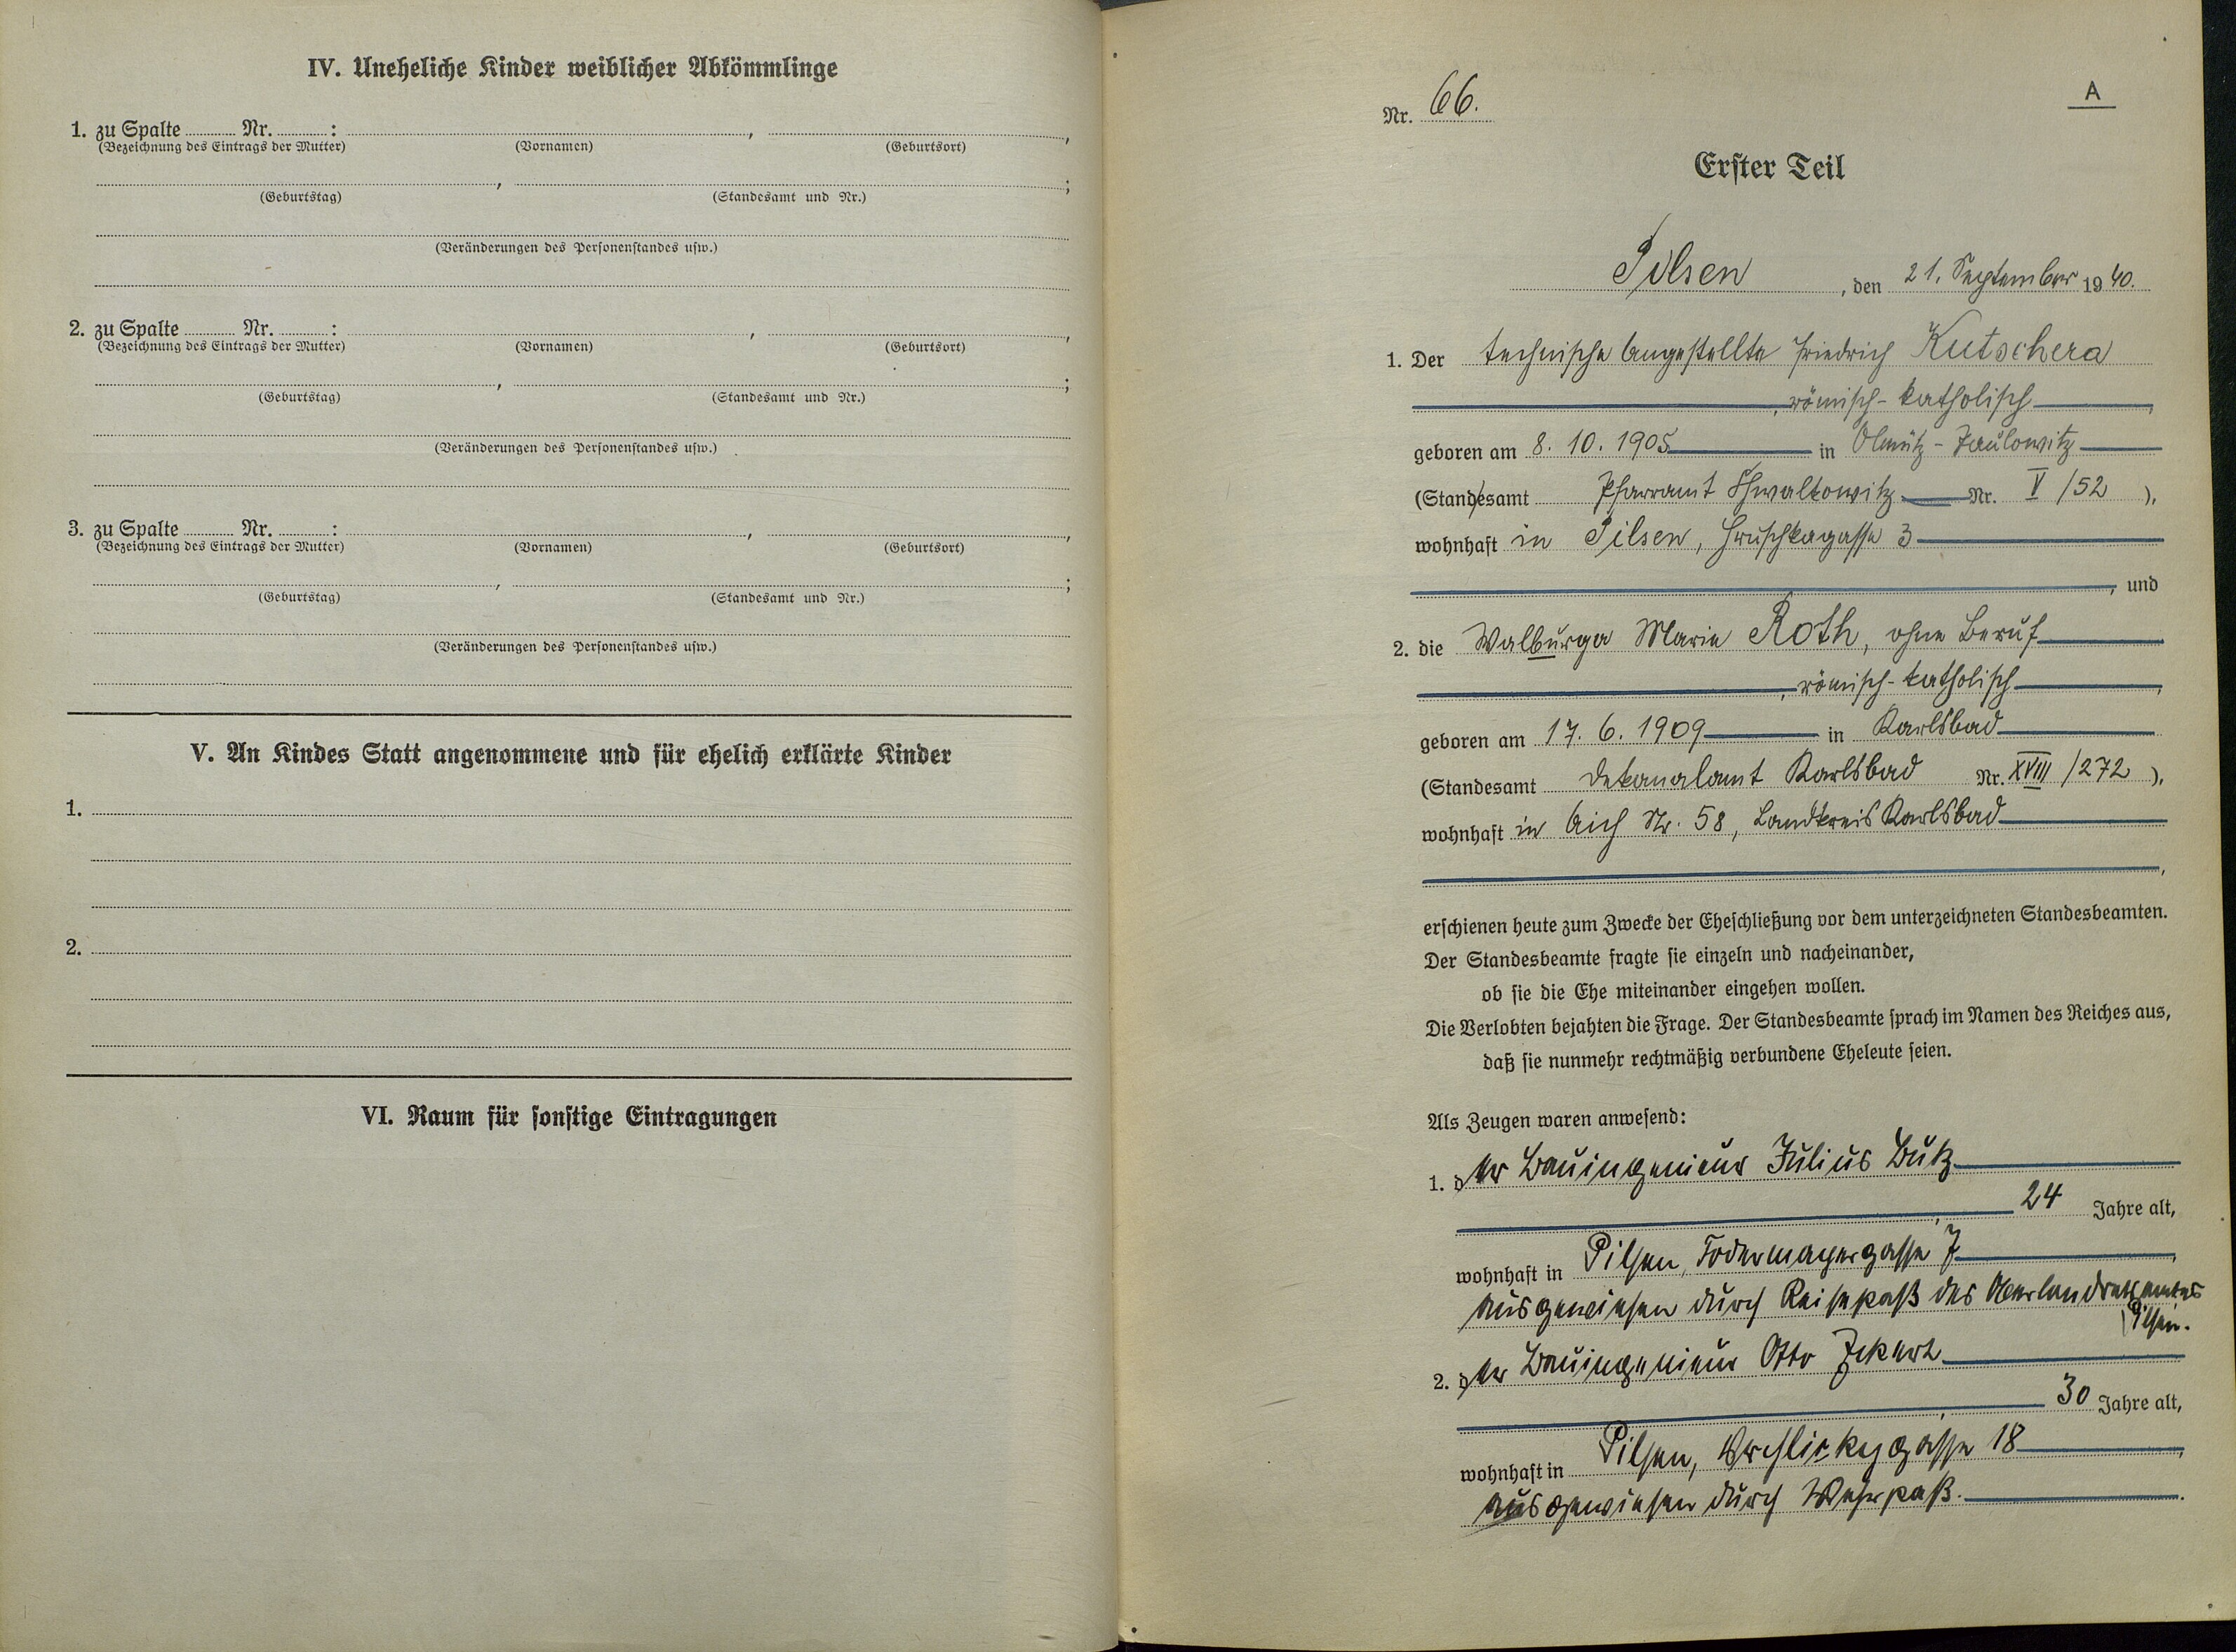 IV. Uneheliche Kinder weiblicher Abkömmlinge
1. zu Spalte Nr. : , ,
(Bezeichnung des Eintrags der Mutter) (Vornamen) (Geburtsort)
, ;
(Geburtstag) (Standesamt und Nr.)
(Veränderungen des Personenstandes usw.)
2. zu Spalte Nr. : , ,
(Bezeichnung des Eintrags der Mutter) (Vornamen) (Geburtsort)
, ;
(Geburtstag) (Standesamt und Nr.)
(Veränderungen des Personenstandes usw.)
3. zu Spalte Nr. : , ,
(Bezeichnung des Eintrags der Mutter) (Vornamen) (Geburtsort)
, ;
(Geburtstag) (Standesamt und Nr.)
(Veränderungen des Personenstandes usw.)
V. An Kindes Statt angenommene und für ehelich erklärte Kinder
1.
2.
VI. Raum für sonstige Eintragungen
A
Nr. 66.
Erster Teil
Pilsen, den 21. September 1940.
1. Der technische Angestellte Friedrich Kutschera
, römisch-katholisch,
geboren am 8. 10. 1905 in Olmütz-Paulowitz
(Standesamt Pfarramt Nr. V/52),
wohnhaft in Pilsen, Hruschkagasse 3
, und
2. die Walburga Maria Roth, ohne Beruf
, römisch-katholisch,
geboren am 17. 6. 1909 in Karlsbad
(Standesamt Dekanalamt Karlsbad Nr. XVIII/272),
wohnhaft in Aich Nr. 58, Landkreis Karlsbad
,
erschienen heute zum Zwecke der Eheschließung vor dem unterzeichneten Standesbeamten.
Der Standesbeamte fragte sie einzeln und nacheinander,
ob sie die Ehe miteinander eingehen wollen.
Die Verlobten bejahten die Frage. Der Standesbeamte sprach im Namen des Reiches aus,
daß sie nunmehr rechtmäßig verbundene Eheleute seien.
Als Zeugen waren anwesend:
1. der Bauingenieur Julius Butz
, 24 Jahre alt,
wohnhaft in Pilsen, Todermayergasse 7,
ausgewiesen durch Reisepaß des Oberlandratsamtes
Pilsen.
2. der Bauingenieur Otto
, 30 Jahre alt,
wohnhaft in Pilsen, Wrchlickygasse 18,
ausgewiesen durch Wehrpaß.